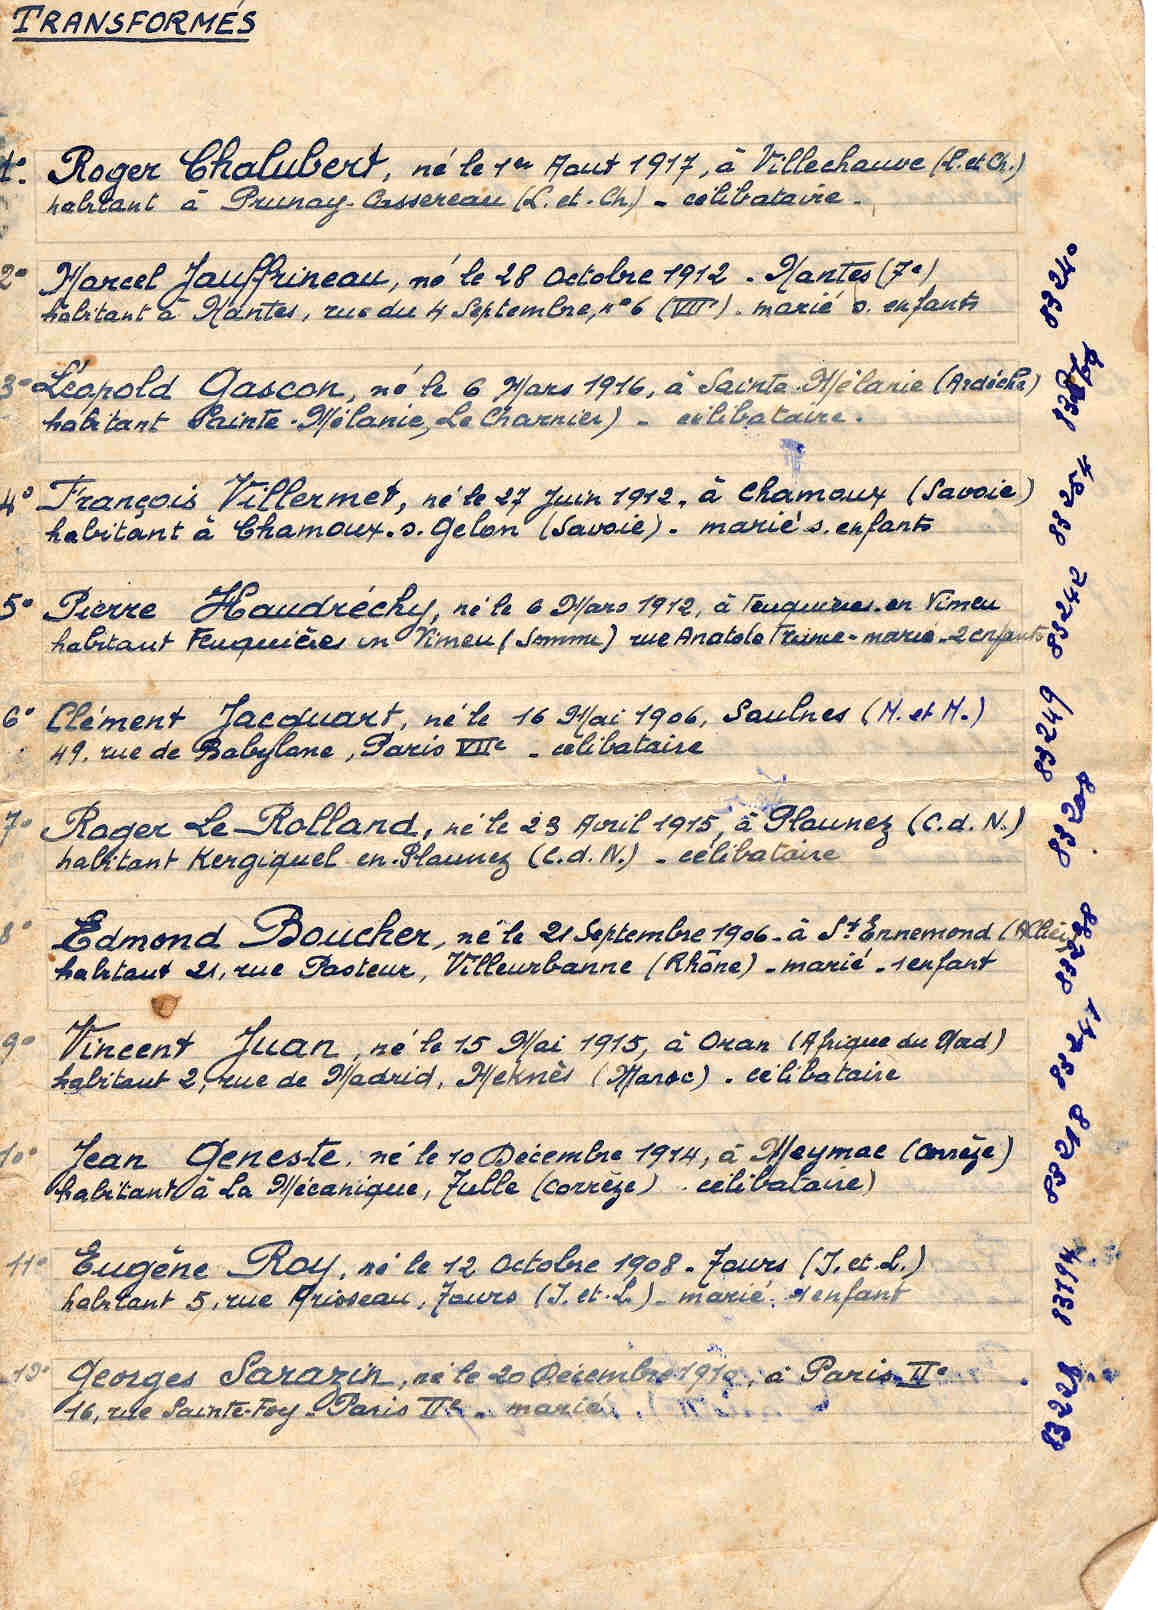 TRANSFORMÉS
1º. Roger Chalubert, né le 1er Aout 1917, à Villechauve (L. et Ch.)
habitant à Prunay-Cassereau (L. et. Ch) - célibataire.
2º Marcel Jauffrineau, né le 28 Octobre 1912 - Nantes (7e)
habitant à Nantes, rue du 4 Septembre, nº 6 (VIIe) - marié s. enfants
83240
3º Léopold Gascon, né le 6 Mars 1916, à Sainte-Mélanie (Ardèche)
habitant Sainte-Mélanie, Le Charnier) - célibataire.
4º François Villermet, né le 27 Juin 1912, à Chamoux (Savoie)
habitant à Chamoux.s.Gelon (Savoie) - marié s. enfants
83254
5º Pierre Haudréchy, né le 6 Mars 1912, à Feuquières-en Vimeu
habitant Feuquières en Vimeu (Somme) rue Anatole France - marié - 2 enfants
83242
6º Clément Jacquart, né le 16 Mai 1906, Saulnes (M. et M.)
49, rue de Babylone, Paris VIIe - célibataire
83249
7º Roger Le Rolland, né le 23 Avril 1915, à Plounez (C.d.N.)
habitant Kergiquel en-Plounez (C.d.N.) - célibataire
83208
8º Edmond Boucher, né le 21 Septembre 1906 - à St Ennemond (Allier)
habitant 21, rue Pasteur, Villeurbanne (Rhône) - marié - 1 enfant
83238
9º Vincent Juan, né le 15 Mai 1915, à Oran (Afrique du Nord)
habitant 2, rue de Madrid, Meknès (Maroc) - célibataire
83241
10º Jean Geneste, né le 10 Décembre 1914, à Meymac (Corrèze)
habitant à La Mécanique, Tulle (Corrèze) - célibataire)
83218
11º Eugène Roy, né le 12 Octobre 1908 - Tours (I. et. L.)
habitant 5, rue Tours (I. et. L) - marié, 1 enfant
83194
12º Georges Sarazin, né le 20 Décembre 1910, à Paris IIe
16, rue Sainte-Foy - Paris IIe - marié
83228